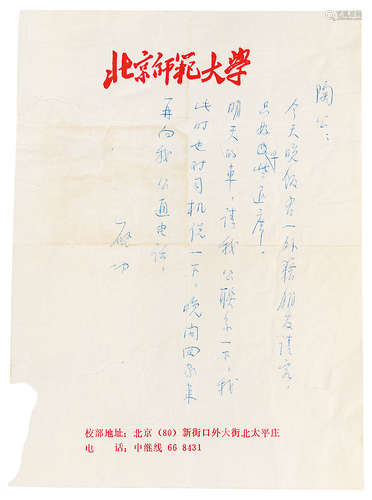 北京師範大學
陶公：
今天晚饭有一外籍朋友请客，
只好此逃席。
明天的車，请我公联系一下，我
此时也对司机说一下，晚间回来
再向我公通电话。
启功
校部地址：北京（80）新街口外大街北太平庄
电　　话：中继线 66 8431